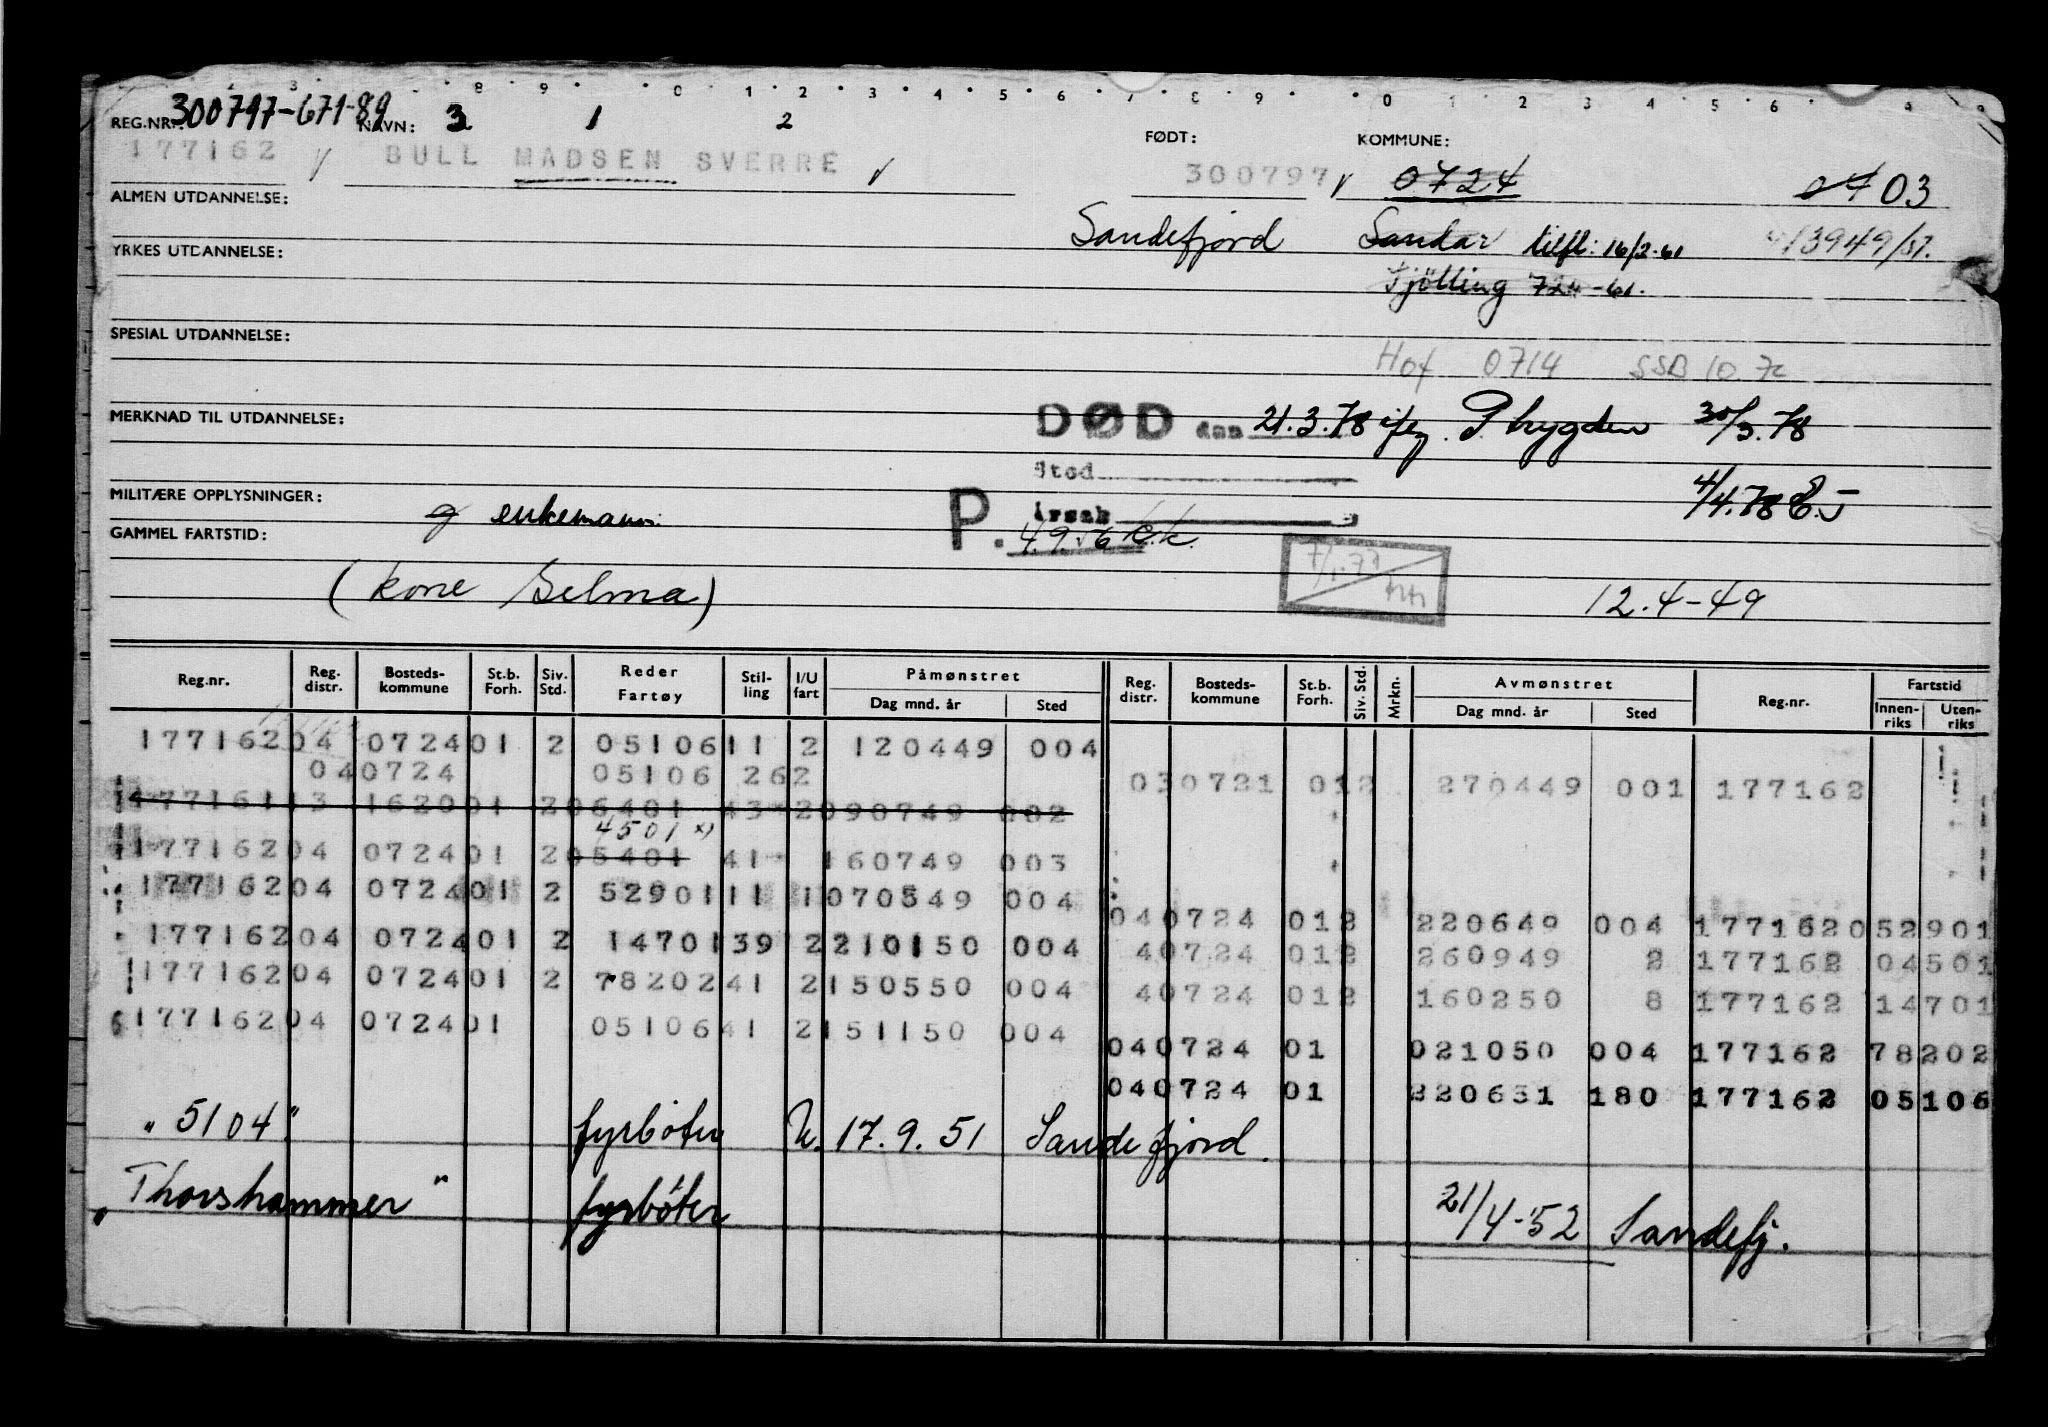 300797-671-89 3 1 2
REG.NR.: NAVN: FØDT: KOMMUNE:
177162 BULL MADSEN SVERRE 300797 0724 0703
ALMEN UTDANNELSE:
Sandefjord Sandar tilfl: 16/2-61 13949/57.
YRKES UTDANNELSE:
Tjölling 724-61.
SPESIAL UTDANNELSE:
Hof 0714 SSB 10.72
MERKNAD TIL UTDANNELSE:
DØD den 21.3.78 ifg. P 30/3.78
Sted
MILITÆRE OPPLYSNINGER:
g enkemann. P. Årsak 4/4.78
GAMMEL FARTSTID:
4.9.56 K.K.
(kone Selma) 12.4-49
Reg.nr. Reg. distr. Bosteds- kommune St.b. Forh. Siv. Std. Reder Fartøy Stil- ling I/U fart Påmønstret Dag mnd. år Sted Reg. distr. Bosteds- kommune St.b. Forh. Siv. Std. Mrkn. Avmønstret Dag mnd. år Sted Reg.nr. Fartstid Innen- riks Uten- riks
177162 04 0724 01 2 05106 11 2 120449 004
04 0724 05106 26 2
03 0721 01 2 270449 001 177162
177161 13 1620 01 2 06401 43 2 090749 002
4501 x)
177162 04 0724 01 2 05401 41 160749 003
177162 04 0724 01 2 52901 11 1 070549 004
04 0724 01 2 220649 004 177162 052901
177162 04 0724 01 2 14701 39 2 210150 004
4 0724 01 2 260949 2 177162 04501
177162 04 0724 01 2 78202 41 2 150550 004
4 0724 01 2 160250 8 177162 14701
177162 04 0724 01 05106 41 2 151150 004
04 0724 01 021050 004 177162 78202
04 0724 01 220651 180 177162 05106
"5104" fyrbøter U. 17.9.51 Sandefjord.
"Thorshammer" fyrbøter 21/4-52 Sandefj.